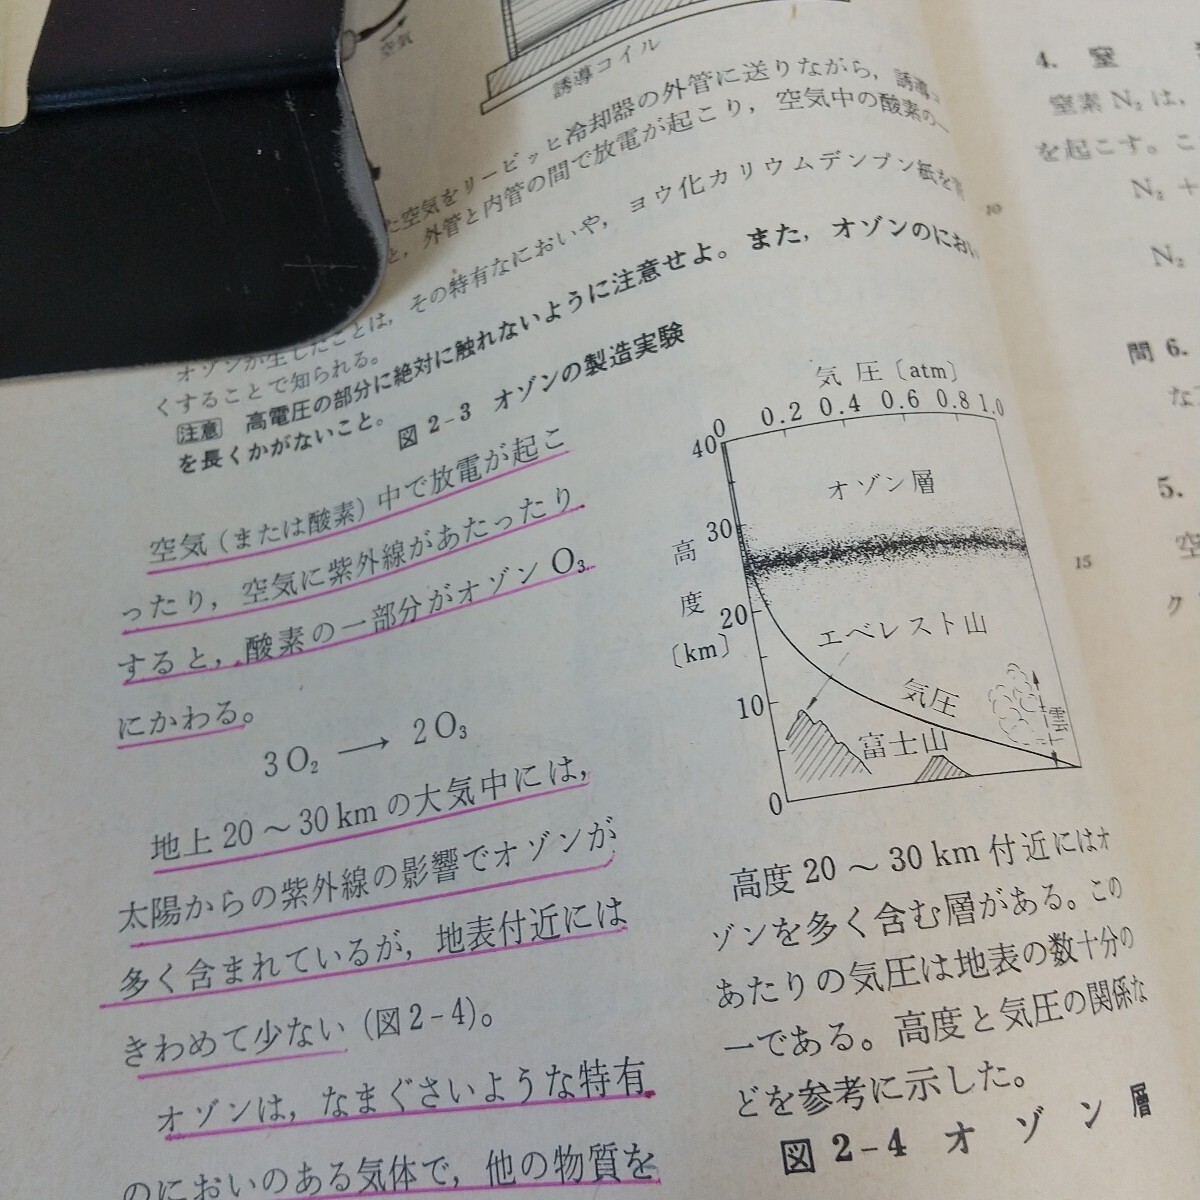 空気
誘導コイル
た空気をリービッヒ冷却器の外管に送りながら，誘導コ
と，外管と内管の間で放電が起こり，空気中の酸素の一
オゾンが生じたことは，その特有なにおいや，ヨウ化カリウムデンプン紙を
くすることで知られる。
注意 高電圧の部分に絶対に触れないように注意せよ。また，オゾンのにおい
を長くかがないこと。
図2-3 オゾンの製造実験
空気（または酸素）中で放電が起こ
ったり，空気に紫外線があたったり
すると，酸素の一部分がオゾンO₃
にかわる。
3O₂ → 2O₃
地上20～30kmの大気中には，
太陽からの紫外線の影響でオゾンが
多く含まれているが，地表付近には
きわめて少ない（図2-4）。
オゾンは，なまぐさいような特有
のにおいのある気体で，他の物質を
気圧〔atm〕
0 0.2 0.4 0.6 0.8 1.0
40
オゾン層
30
高度〔km〕
20
エベレスト山
気圧
雲
10
富士山
0
高度20～30km付近にはオ
ゾンを多く含む層がある。この
あたりの気圧は地表の数十分の
一である。高度と気圧の関係な
どを参考に示した。
図2-4 オゾン層
4. 窒
窒素N₂は，
を起こす。こ
10
N₂ +
N₂
問6.
な
5.
15
空
ク